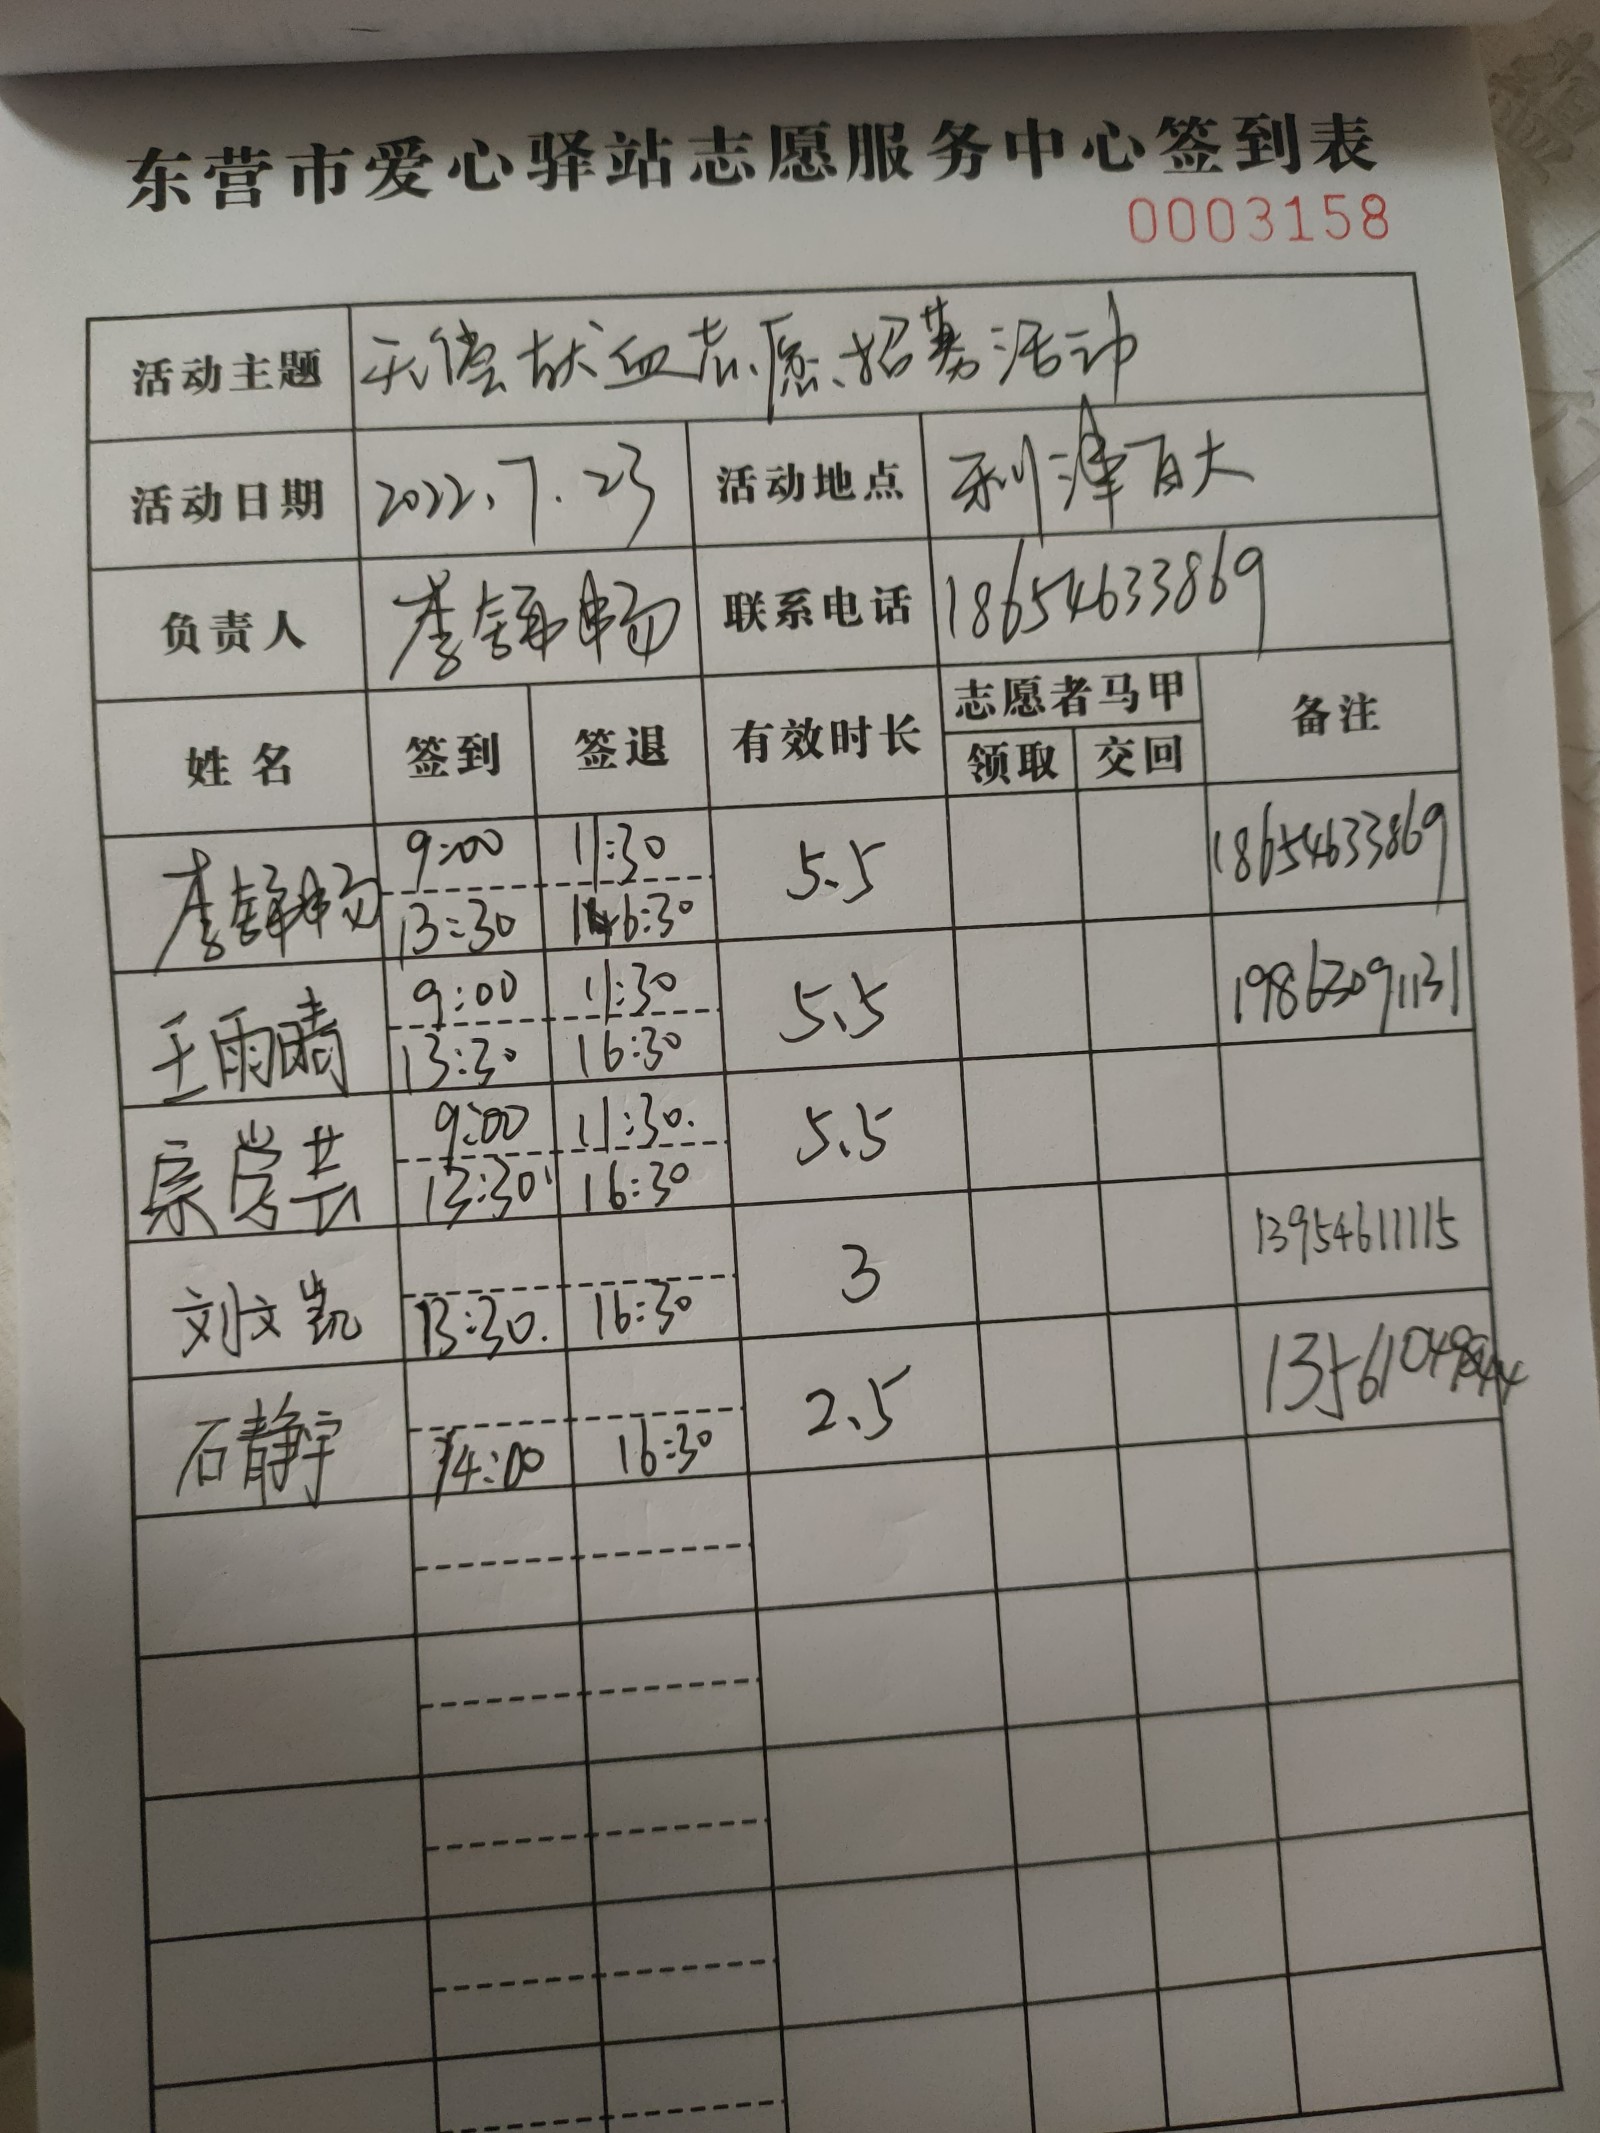 东营市爱心驿站志愿服务中心签到表
0003158
活动主题 无偿献血志愿招募活动
活动日期 2022.7.23 活动地点 利津百大
负责人 李锦畅 联系电话 18654633869
姓名 签到 签退 有效时长 志愿者马甲 备注
领取 交回
李锦畅 9:00 11:30 5.5 18654633869
13:30 16:30
王雨晴 9:00 11:30 5.5 19863091131
13:30 16:30
宗学芸 9:00 11:30. 5.5
13:30 16:30
刘文凯 13:30. 16:30 3 13954611115
石静宇 14:00 16:30 2.5